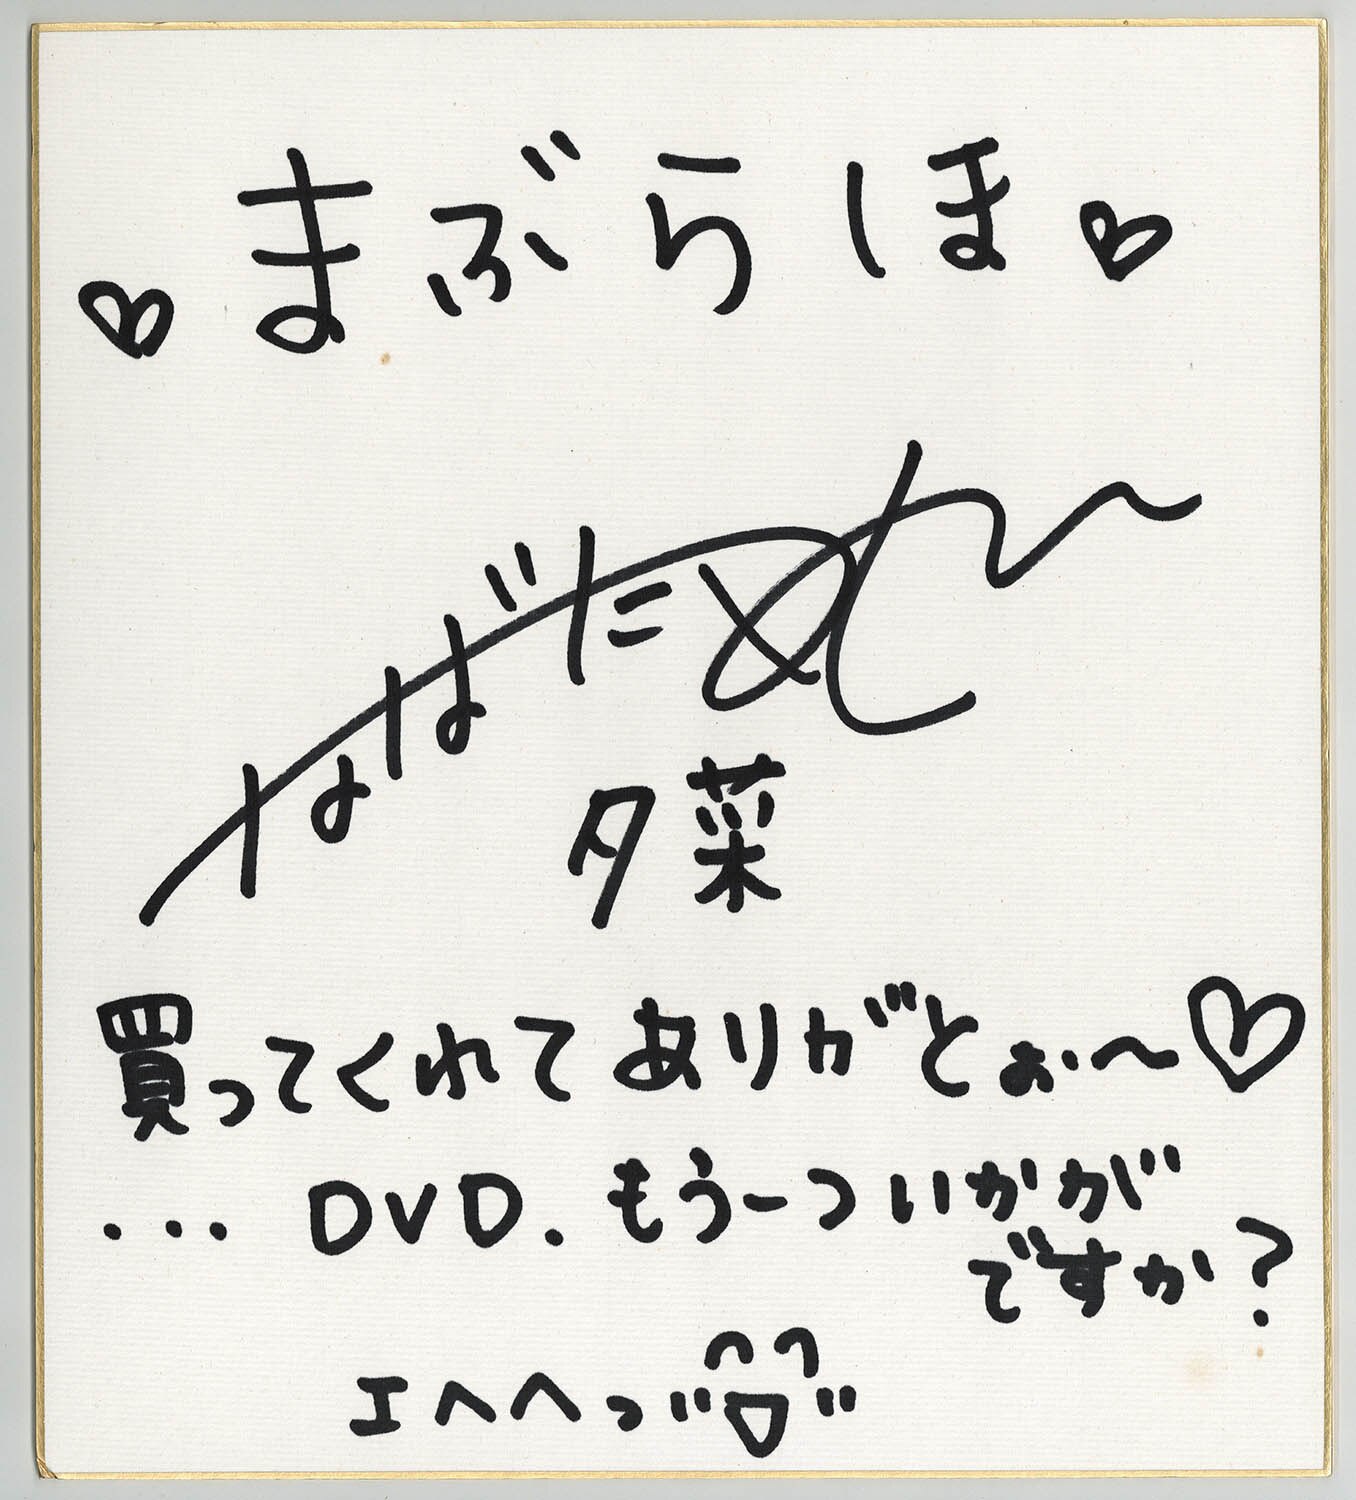 ♡まぶらほ♡
なばため
夕菜
買ってくれてありがとぉ～♡
... DVD. もう一ついかが
ですか？
エヘヘっ